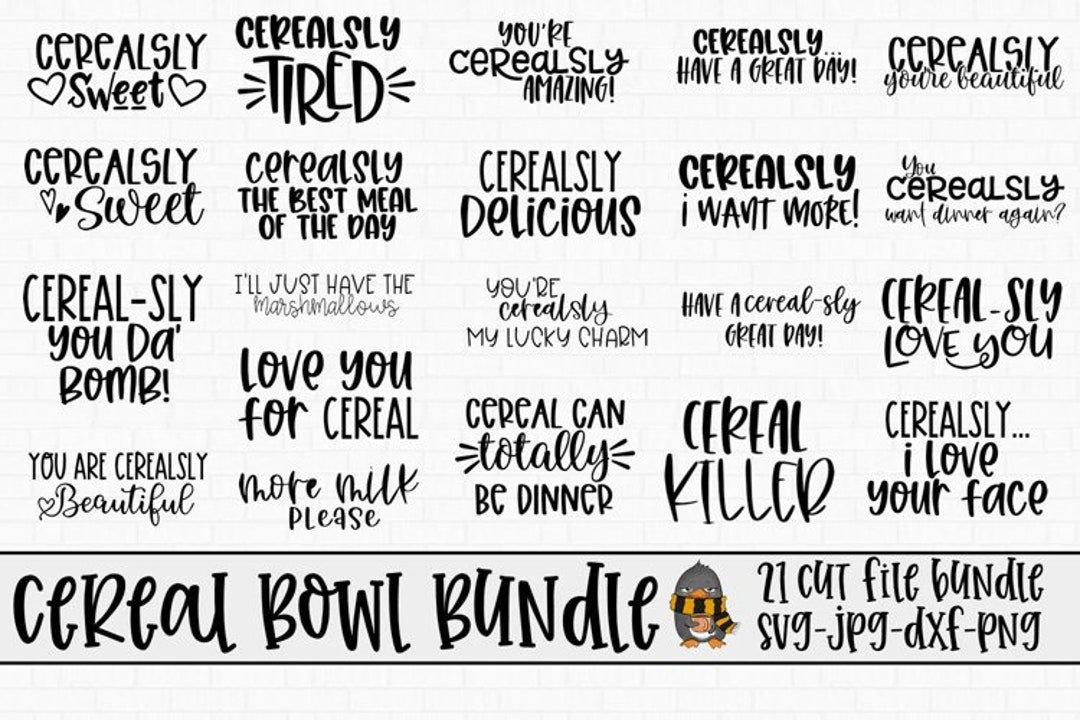 CEREALSLY
Sweet
CEREALSLY
TIRED
YOU'RE
CEREALSLY
AMAZING!
CEREALSLY...
HAVE A GREAT DAY!
CEREALSLY
you're beautiful
CEREALSLY
Sweet
cerealsly
THE BEST MEAL
OF THE DAY
CEREALSLY
Delicious
CEREALSLY
i WANT MORE!
You
CEREALSLY
want dinner again?
CEREAL-SLY
you Da'
BOMB!
I'LL JUST HAVE THE
Marshmallows
YOU'RE
cerealsly
MY LUCKY CHARM
HAVE A cereal-sly
GREAT DAY!
CEREAL-SLY
LOVE YOU
Love you
for CEREAL
CEREAL CAN
totally
BE DINNER
CEREAL
KILLER
CEREALSLY...
i love
your face
YOU ARE CEREALSLY
Beautiful
more milk
please
CEREAL BOWL BUNDLE
21 CUT FILE BUNDLE
SVG-JPG-DXF-PNG